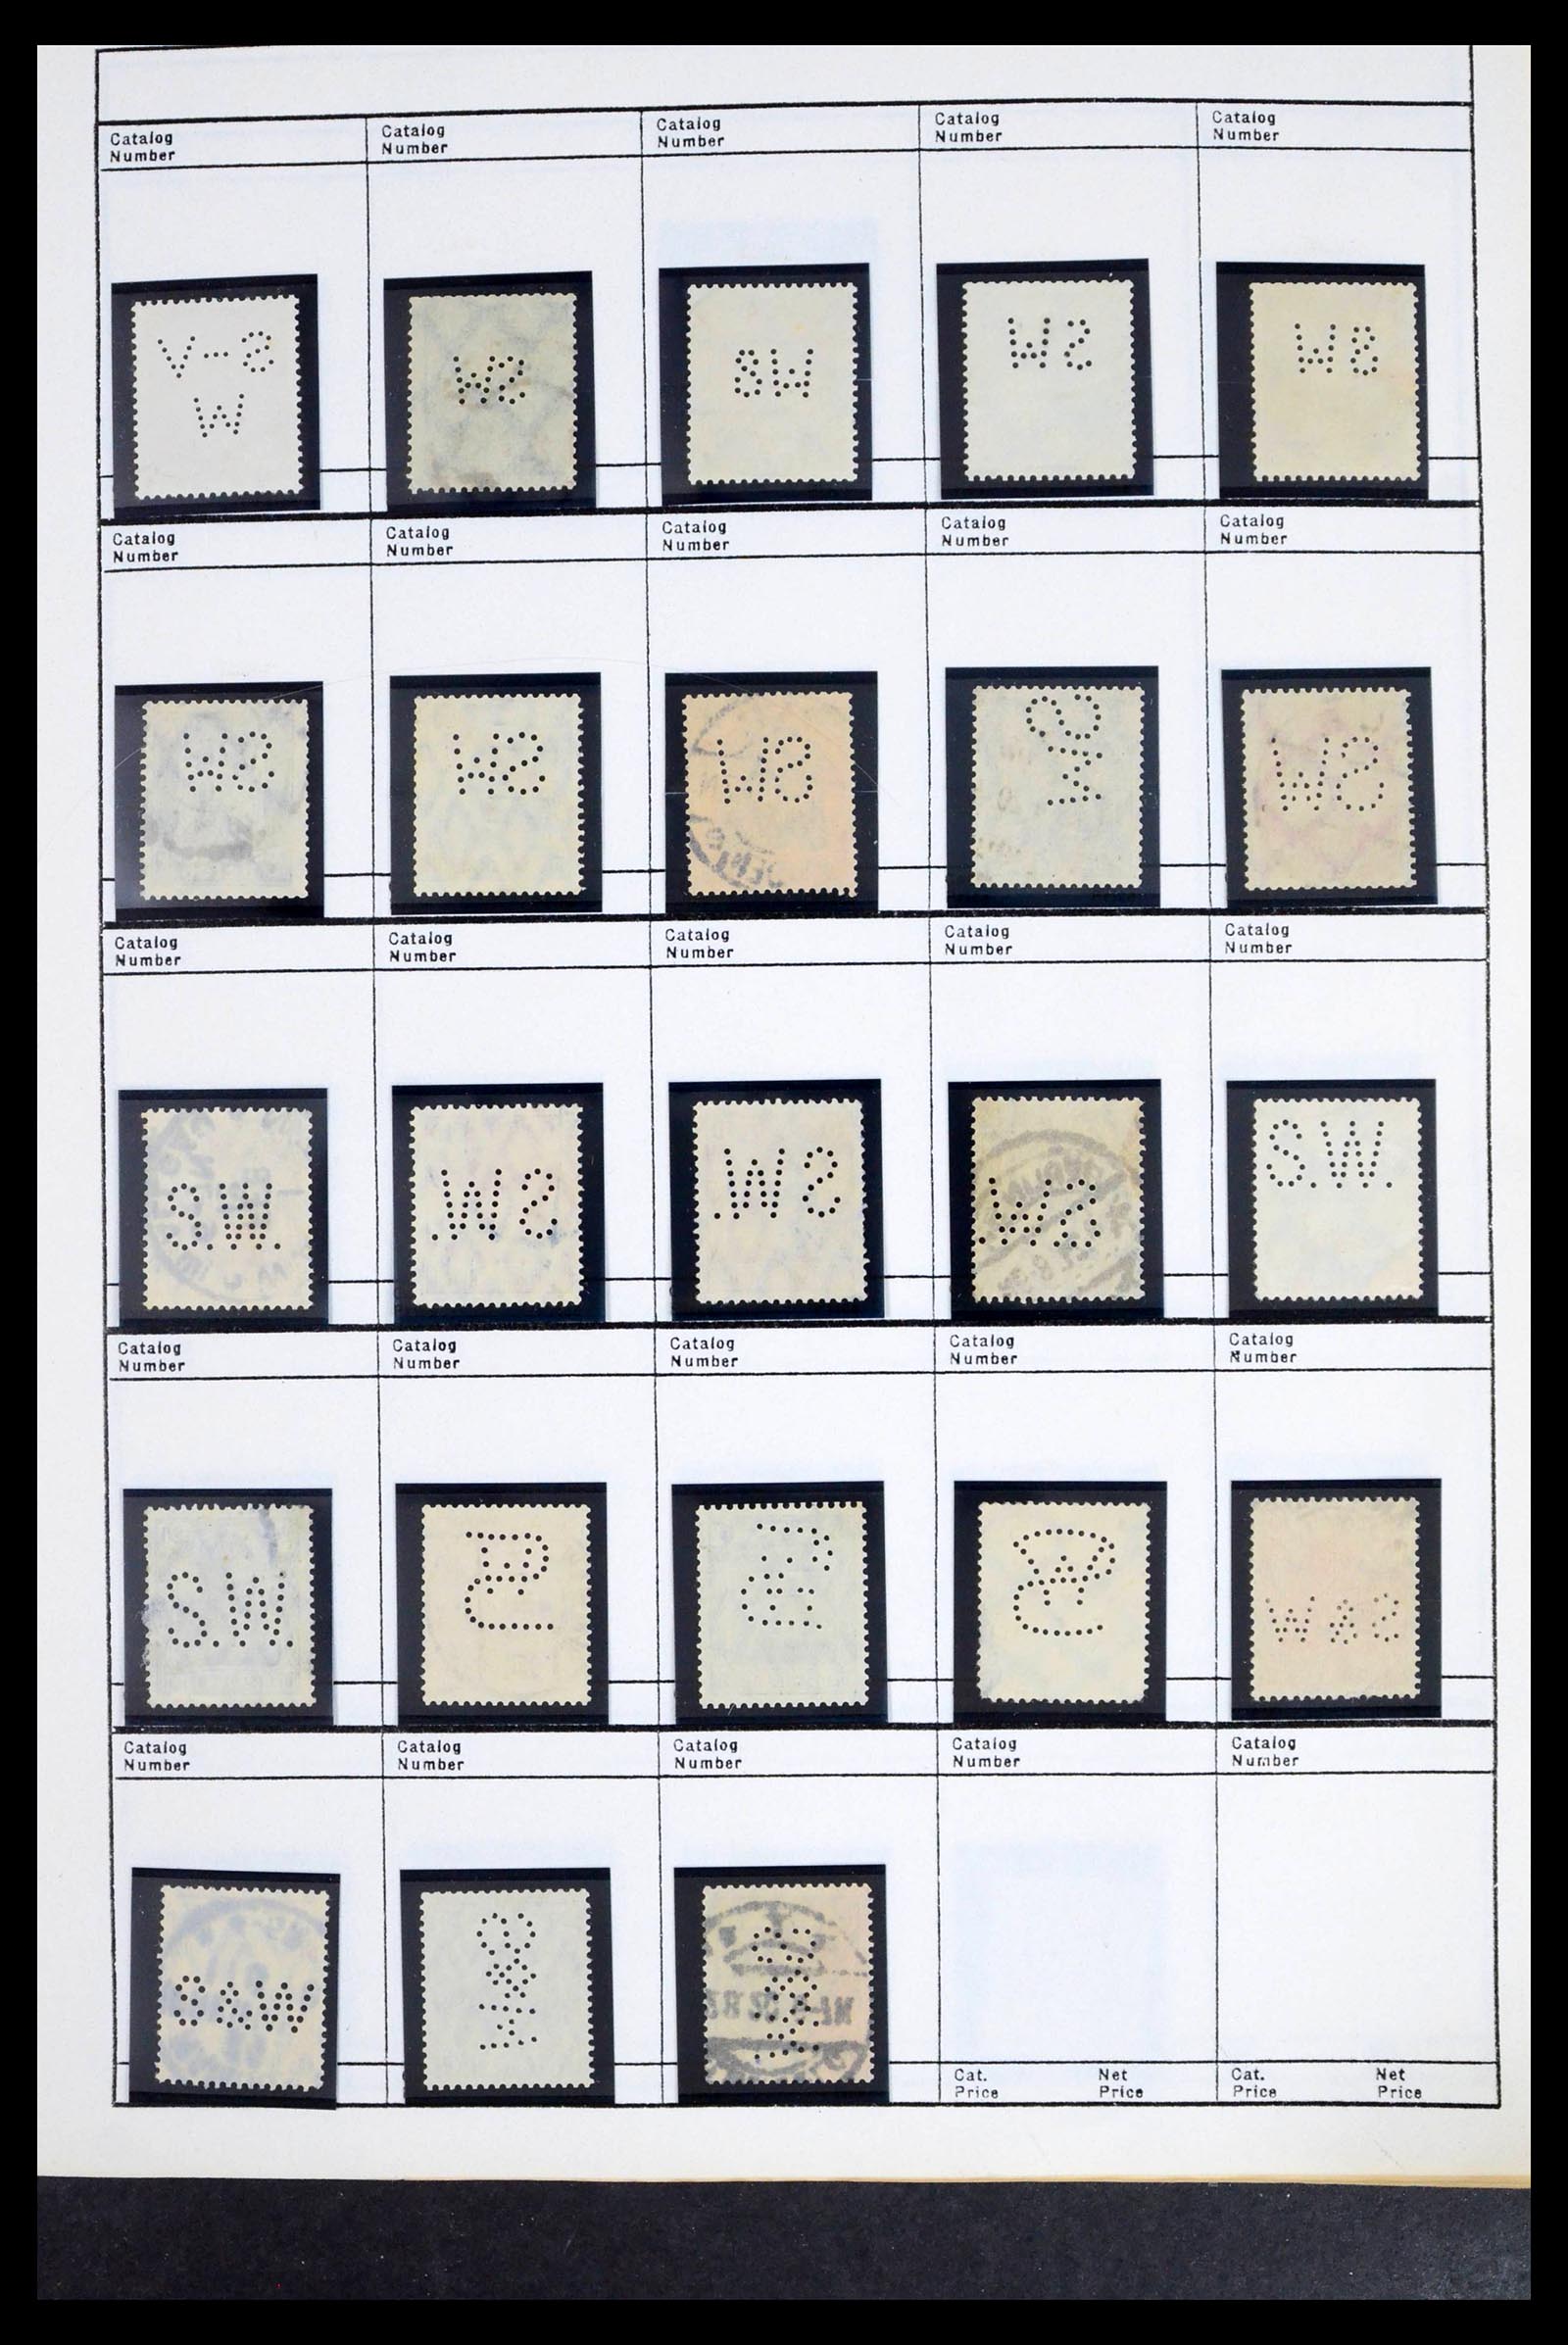 Catalog Number
Catalog Number
Catalog Number
Catalog Number
Catalog Number
V-S
W
WS
SW
WS
WS
Catalog Number
Catalog Number
Catalog Number
Catalog Number
Catalog Number
WS
WS
WS
WS
Catalog Number
Catalog Number
Catalog Number
Catalog Number
Catalog Number
S.W.
.WS
.WS
.WS
S.W.
Catalog Number
Catalog Number
Catalog Number
Catalog Number
Catalog Number
S.W.
W&S
Catalog Number
Catalog Number
Catalog Number
Catalog Number
Catalog Number
S&W
Cat. Price
Net Price
Cat. Price
Net Price